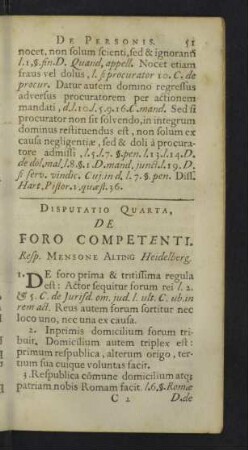 DE PERSONIS. 51
nocet, non solum scienti, sed & ignoranti
l. 1. §. fin. D. Quand. appell. Nocet etiam
fraus vel dolus, l. si procurator 10. C. de
procur. Datur autem domino regressus
adversus procuratorem per actionem
mandati, d. l. 10. l. 5. q. 16. C. mand. Sed si
procurator non sit solvendo, in integrum
dominus restituendus est, non solum ex
causa negligentiæ, sed & doli à procura-
tore admissi, l. 5. l. 7. §. pen. l. 13. l. 14. D.
de dol. mal. l. 8. §. 1. D. mand. junct. l. 19. D.
si serv. vindic. Cuj. in d. l. 7. §. pen. Diss.
Hart. Pistor. 1. quæst. 36.
DISPUTATIO QUARTA,
DE
FORO COMPETENTI.
Resp. MENSONE ALTING Heidelberg.
1. DE foro prima & tritissima regula
est: Actor sequitur forum rei l. 2.
& 5. C. de Jurisd. om. jud. l. ult. C. ub. in
rem act. Reus autem forum sortitur nec
loco uno, nec una ex causa.
2. Inprimis domicilium forum tri-
buit. Domicilium autem triplex est:
primum respublica, alterum origo, ter-
tium sua cuique voluntas facit.
3. Respublica cōmune domicilium atq;
patriam nobis Romam facit. l. 6. §. Romæ
C 2 D. de